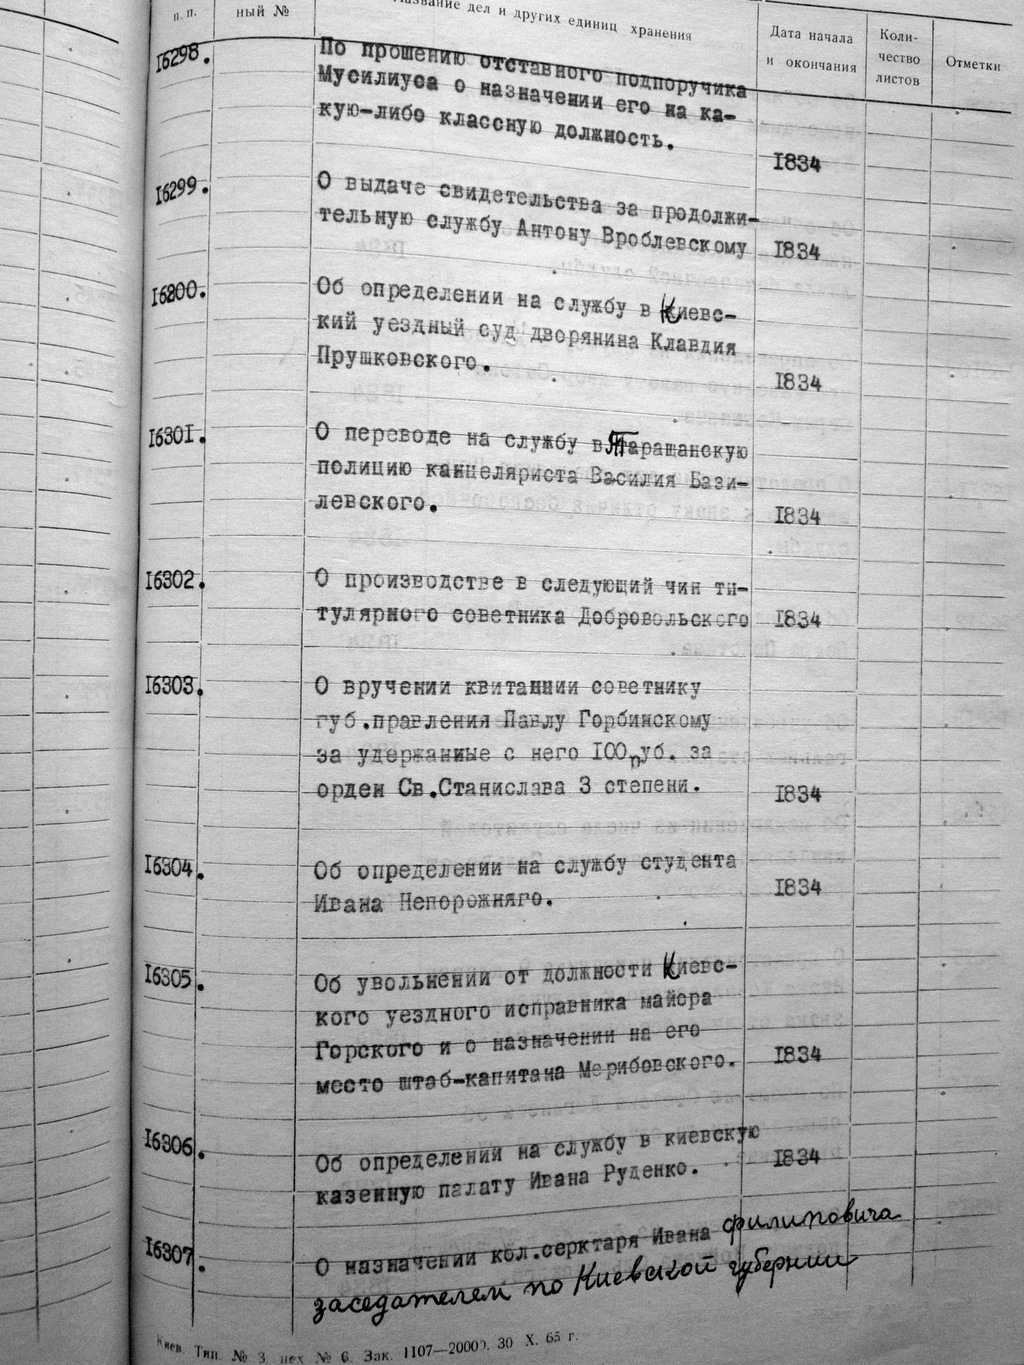 п. п.
ный №
Название дел и других единиц хранения
Дата начала
и окончания
Коли-
чество
листов
Отметки
16298.
По прошению отставного подпоручика
Мусилиуса о назначении его на ка-
кую-либо классную должность.
1834
16299.
О выдаче свидетельства за продолжи-
тельную службу Антону Вроблевскому
1834
16300.
Об определении на службу в Киевс-
кий уездный суд дворянина Клавдия
Прушковского.
1834
16301.
О переводе на службу в Таращанскую
полицию канцеляриста Василия Бази-
левского.
1834
16302.
О производстве в следующий чин ти-
тулярного советника Добровольского
1834
16303.
О вручении квитанции советнику
губ.правления Павлу Горбинскому
за удержанные с него 100руб. за
орден Св.Станислава 3 степени.
1834
16304.
Об определении на службу студента
Ивана Непорожняго.
1834
16305.
Об увольнении от должности Киевс-
кого уездного исправника майора
Горского и о назначении на его
место штаб-капитана Мерибовского.
1834
16306.
Об определении на службу в киевскую
казенную палату Ивана Руденко.
1834
16307.
О назначении кол.серктаря Ивана филиповича
заседателем по Киевской губернии
Киев. Тип. № 3, цех № 6. Зак. 1107—20000. 30 X. 65 г.